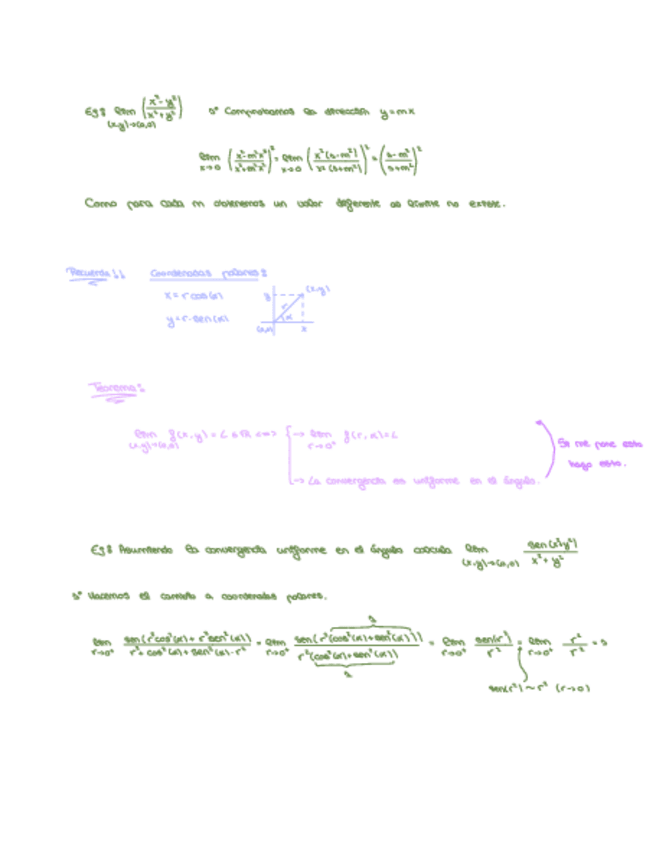 Ej: lim (x,y)→(0,0) (x²-y²/x²+y²)² 1º Comprobamos la dirección y=mx
lim x→0 (x²-m²x²/x²+m²x²)² = lim x→0 (x²(1-m²)/x²(1+m²))² = (1-m²/1+m²)²
Como para cada m obtenemos un valor diferente el límite no existe.
Recuerda!! Coordenadas polares:
x=r cos(α)
y=r·sen(α)
y r (x,y)
α
(0,0) x
Teorema:
lim (x,y)→(0,0) f(x,y)=L∈ℝ <=> → lim r→0⁺ f(r,α)=L
→ La convergencia es uniforme en el ángulo.
Si me pone esto
hago esto.
Ej: Asumiendo la convergencia uniforme en el ángulo calcula lim (x,y)→(0,0) sen(x²+y²)/x²+y²
1º Hacemos el cambio a coordenadas polares.
lim r→0⁺ sen(r²cos²(α)+r²sen²(α))/r²+cos²(α)+sen²(α)·r² = lim r→0⁺ sen(r²(cos²(α)+sen²(α)))/r²(cos²(α)+sen²(α)) = lim r→0⁺ sen(r²)/r² = lim r→0⁺ r²/r² = 1
1
1
sen(r²)~r² (r→0)